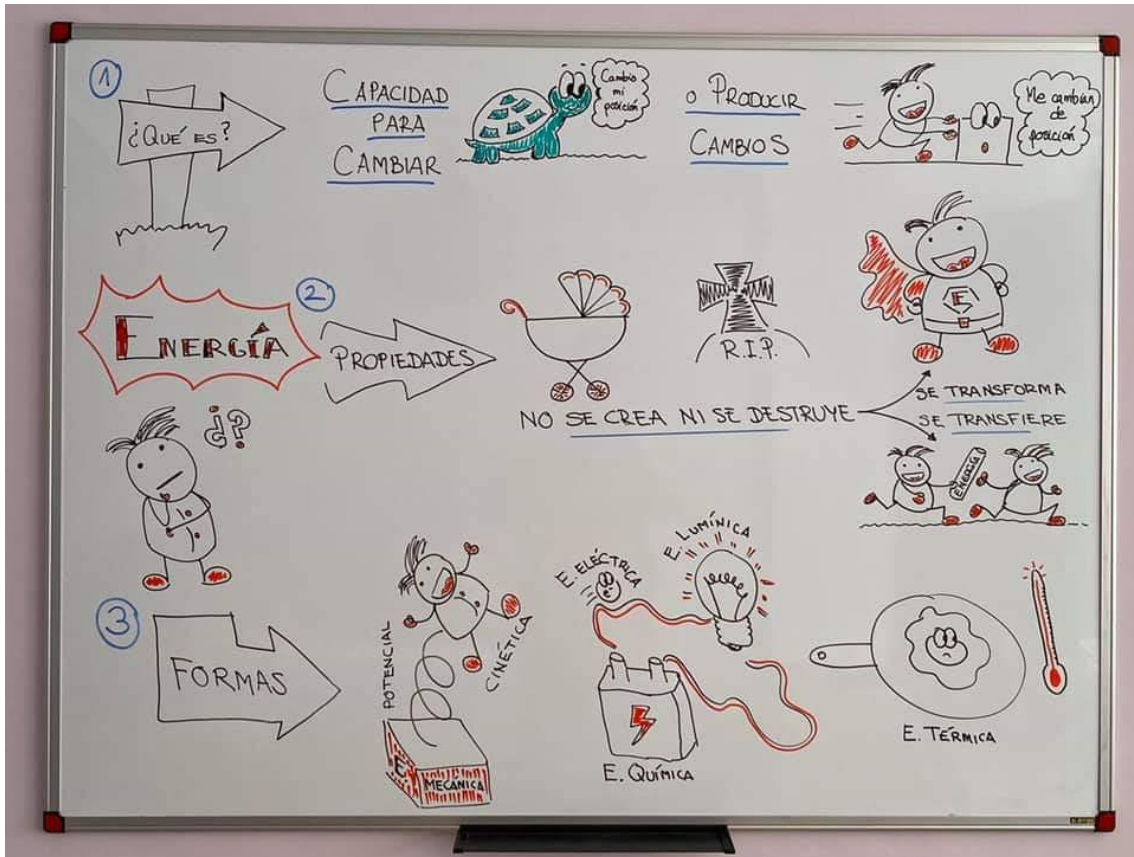 1
¿QUÉ ES?
CAPACIDAD
PARA
CAMBIAR
Cambio
mi
posición
o PRODUCIR
CAMBIOS
Me cambian
de
posición
ENERGÍA
2
PROPIEDADES
R.I.P.
E
NO SE CREA NI SE DESTRUYE
SE TRANSFORMA
SE TRANSFIERE
ENERGÍA
¿?
3
FORMAS
POTENCIAL
CINÉTICA
E. MECÁNICA
E. ELÉCTRICA
E. LUMÍNICA
E. QUÍMICA
E. TÉRMICA